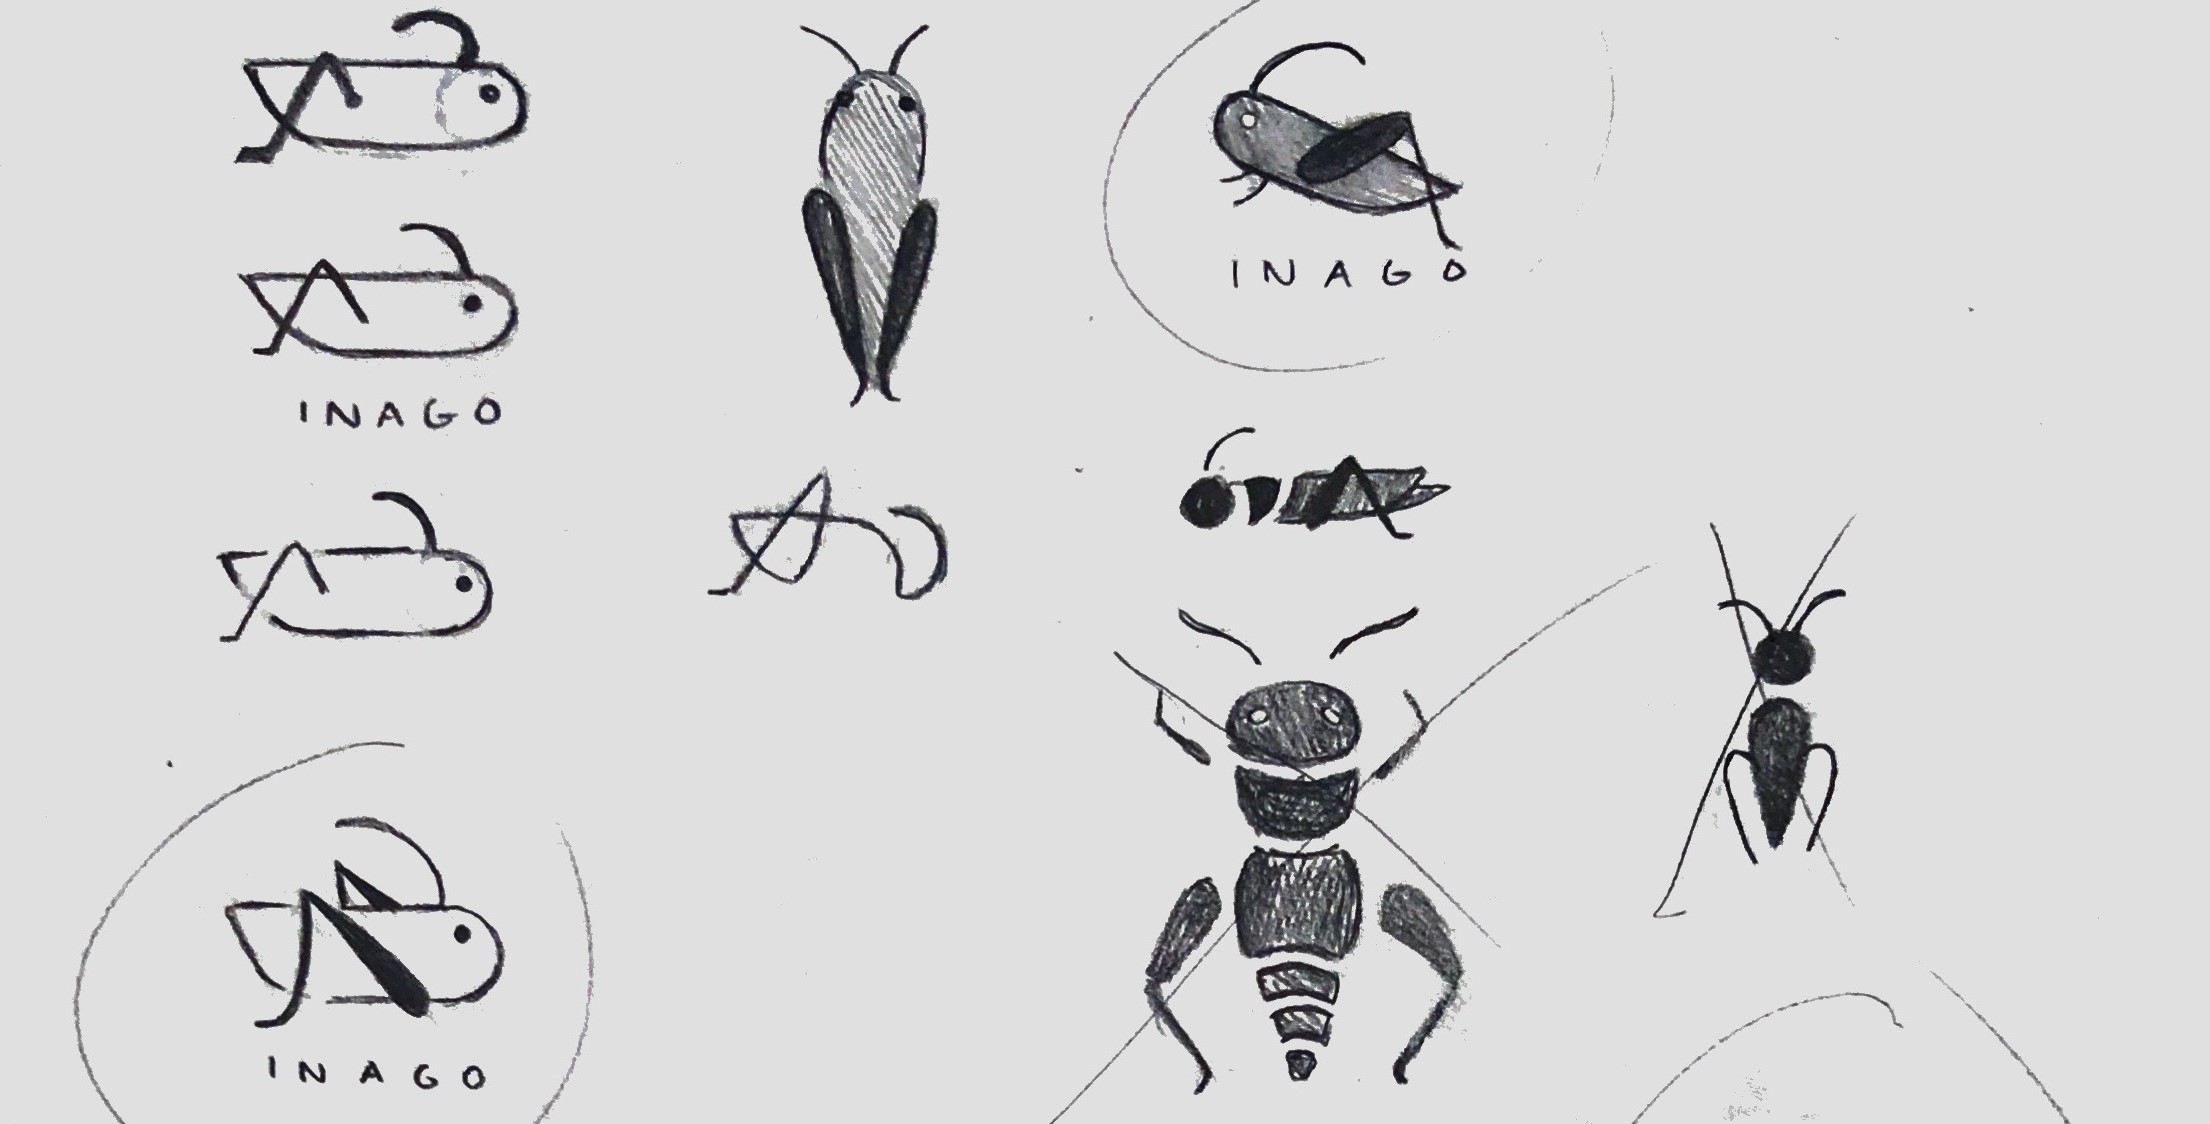 INAGO
INAGO
INAGO